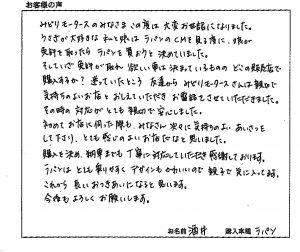 お客様の声
みどりモータースのみなさま この度は大変お世話になりました。
うさぎが大好きな私と娘はラパンのCMを見る度に、娘が
免許を取ったらラパンを買おうと決めていました。
そしていざ免許が取れ 欲しい車は決まっているものの どこの販売店で
購入するか? 迷っていたところ 友達から みどりモータースさんは親切で
気持ちのよいお店とおしえていただき お電話させていただきました。
その時の対応がとても親切で安心しました。
初めてお店に伺った際も、みなさん 次々に気持ちのよい あいさつを
して下さり、とても感じのよいお店だなと思いました。
購入を決め、納車までも丁寧に対応していただき感謝しております。
ラパンはとても乗りやすく デザインもかわいいので 親子で気に入ってます。
これから長いおつきあいになると思います。
今後もよろしくお願いします。
お名前 酒井 購入車種 ラパン